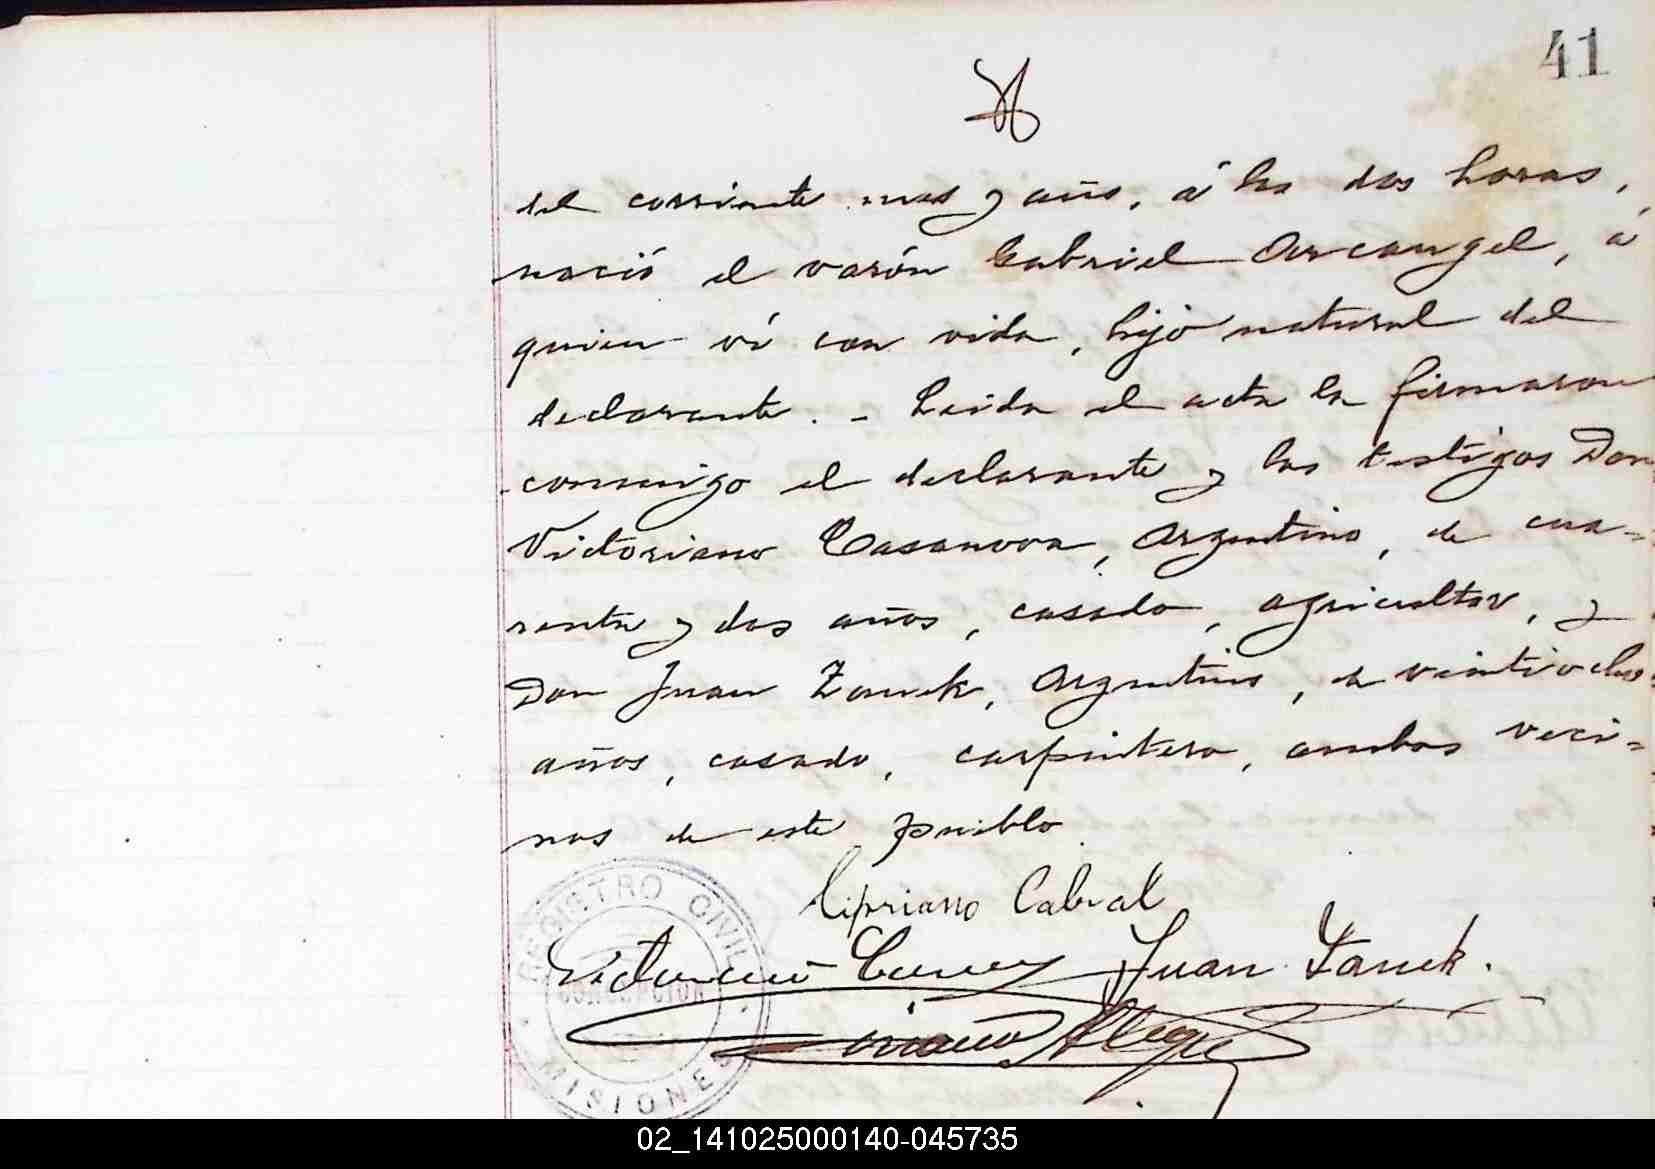 41
del corriente mes y año, á las dos horas,
nació el varón Gabriel Arcangel, á
quien ví con vida, hijo natural del
declarante. - Leida el acta la firmaron
conmigo el declarante y los testigos Don
Victoriano Casanova, Argentino, de cua=
renta y dos años, casado, agricultor, y
Don Juan Zanek, Argentino, de veintiocho
años, casado, carpintero, ambos veci=
nos de este pueblo
Cipriano Cabral
Juan Yanek.
REGISTRO CIVIL
CONCEPCION
MISIONES
02_141025000140-045735